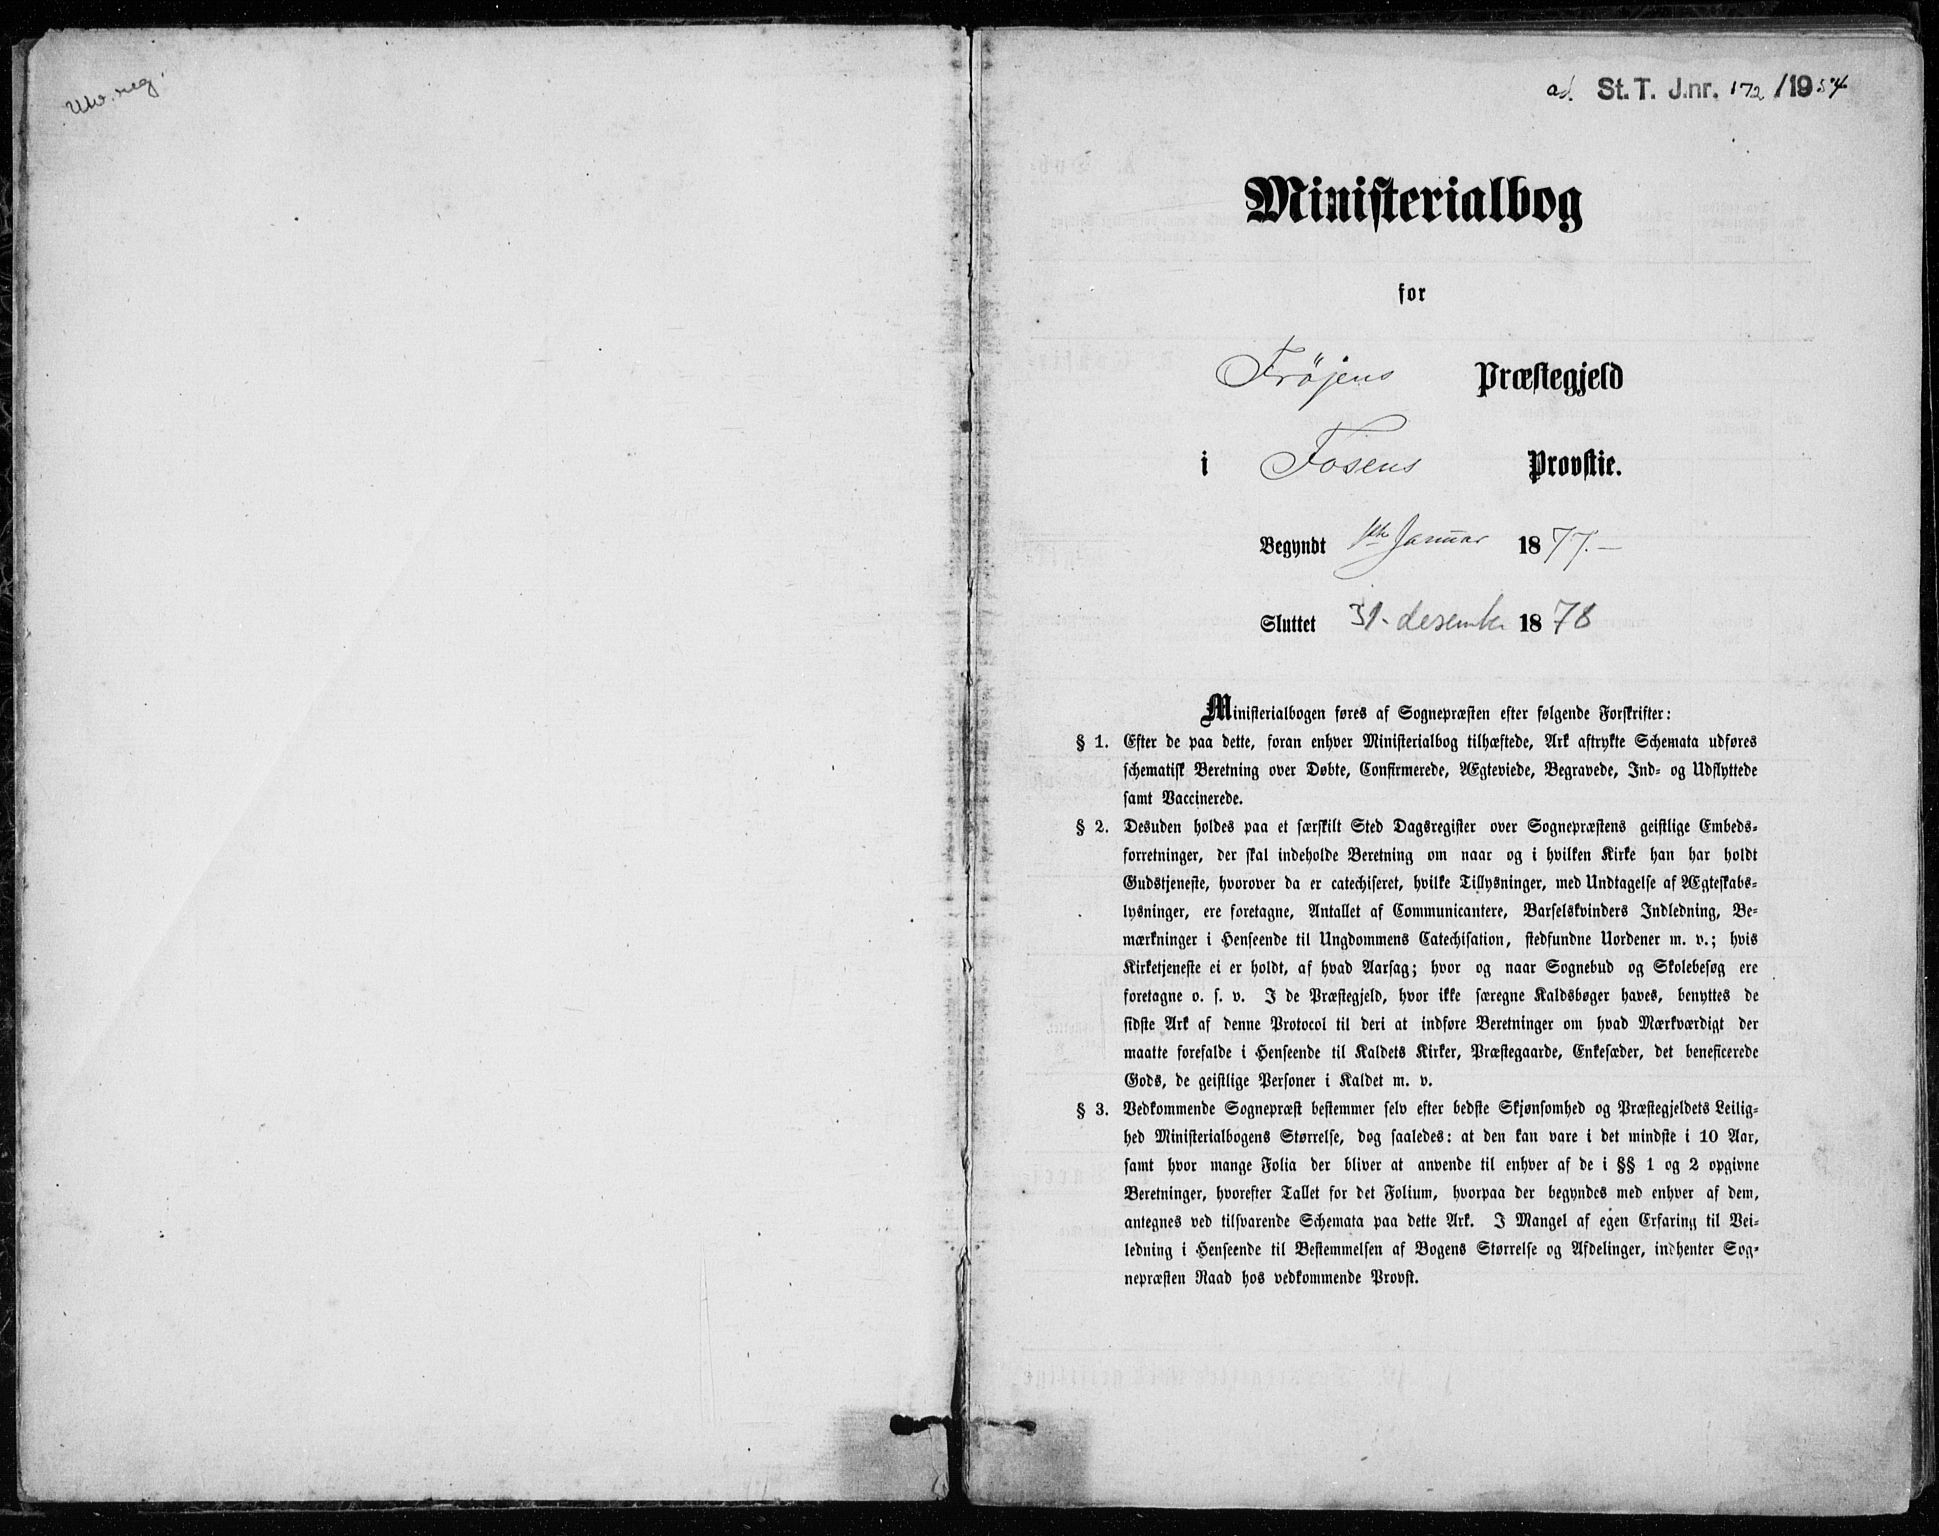 Utv. reg.
ad. St. T. J.nr. 172 /1954
Ministerialbog
for
Frøjens Præstegjeld
i Fosens Provstie.
Begyndt 1ste Januar 1877.—
Sluttet 31. desember 1878
Ministerialbogen føres af Sognepræsten efter følgende Forskrifter:
§ 1. Efter de paa dette, foran enhver Ministerialbog tilhæftede, Ark aftrykte Schemata udføres
schematisk Beretning over Døbte, Confirmerede, Ægteviede, Begravede, Ind- og Udflyttede
samt Vaccinerede.
§ 2. Desuden holdes paa et særskilt Sted Dagsregister over Sognepræstens geistlige Embeds-
forretninger, der skal indeholde Beretning om naar og i hvilken Kirke han har holdt
Gudstjeneste, hvorover da er catechiseret, hvilke Tillysninger, med Undtagelse af Ægteskabs-
lysninger, ere foretagne, Antallet af Communicantere, Barselskvinders Indledning, Be-
mærkninger i Henseende til Ungdommens Catechisation, stedfundne Uordener m. v.; hvis
Kirketjeneste ei er holdt, af hvad Aarsag; hvor og naar Sognebud og Skolebesøg ere
foretagne o. s. v. I de Præstegjeld, hvor ikke særegne Kaldsbøger haves, benyttes de
sidste Ark af denne Protocol til deri at indføre Beretninger om hvad Mærkværdigt der
maatte forefalde i Henseende til Kaldets Kirker, Præstegaarde, Enkesæder, det beneficerede
Gods, de geistlige Personer i Kaldet m. v.
§ 3. Vedkommende Sognepræst bestemmer selv efter bedste Skjønsomhed og Præstegjeldets Leilig-
hed Ministerialbogens Størrelse, dog saaledes: at den kan vare i det mindste i 10 Aar,
samt hvor mange Folia der bliver at anvende til enhver af de i §§ 1 og 2 opgivne
Beretninger, hvorefter Tallet for det Folium, hvorpaa der begyndes med enhver af dem,
antegnes ved tilsvarende Schemata paa dette Ark. I Mangel af egen Erfaring til Vei-
ledning i Henseende til Bestemmelsen af Bogens Størrelse og Afdelinger, indhenter Sog-
nepræsten Raad hos vedkommende Provst.